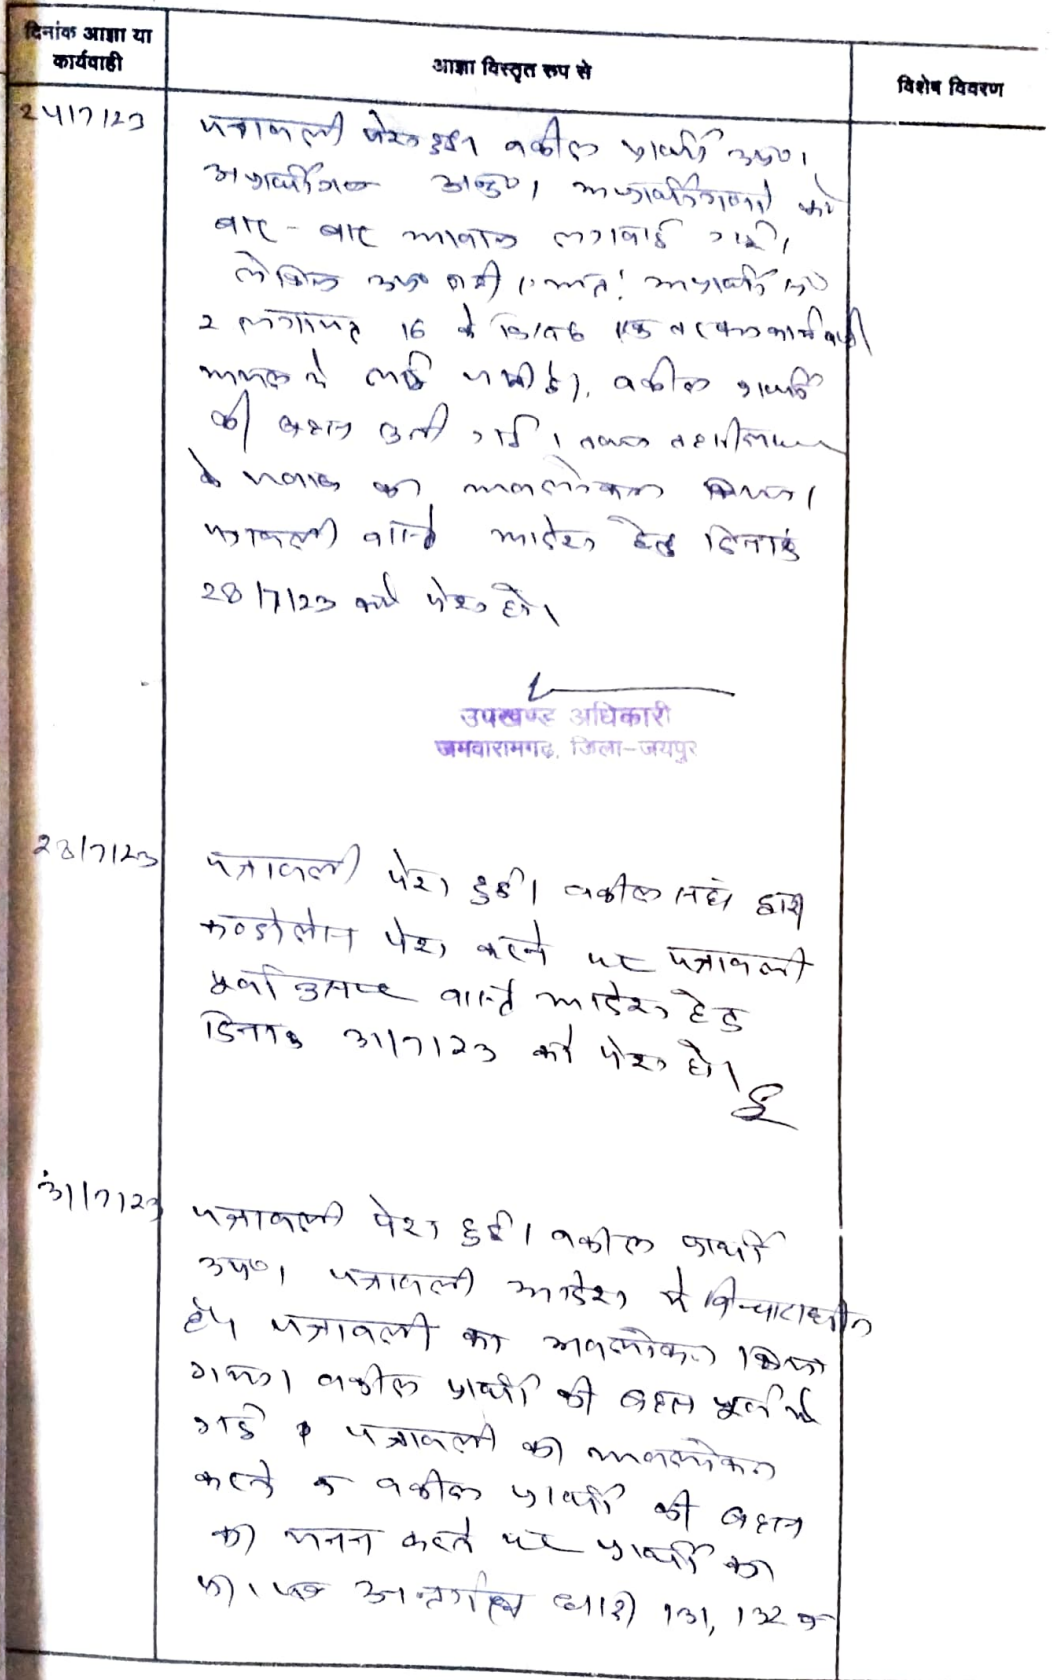 दिनांक आज्ञा या
कार्यवाही
आज्ञा विस्तृत रूप से
विशेष विवरण
24/7/23
पत्रावली पेश हुई। वकील प्रार्थी उप०।
अप्रार्थीगण अनु०। अप्रार्थीगणों को
बार-बार आवाज लगवाई गई।
लेकिन उप० नहीं अप्रार्थी सं०
2 लगायत 16 के खिलाफ एक तरफा कार्यवाही
अमल में लाई जाती है। वकील प्रार्थी
की बहस सुनी गई। तहसीलदार
के जवाब का अवलोकन किया।
पत्रावली वास्ते आदेश हेतु दिनांक
28/7/23 को पेश हो।
उपखण्ड अधिकारी
जमवारामगढ़, जिला-जयपुर
28/7/23
पत्रावली पेश हुई। वकील संघ द्वारा
कण्डोलेन्स पेश करने पर पत्रावली
पूर्वानुसार वास्ते आदेश हेतु
दिनांक 31/7/23 को पेश हो।
31/7/23
पत्रावली पेश हुई। वकील प्रार्थी
उप०। पत्रावली आदेश में विचाराधीन
है। पत्रावली का अवलोकन किया
गया। वकील प्रार्थी की बहस पूर्व में
गई पत्रावली का अवलोकन
करने व वकील प्रार्थी की बहस
का मनन करने पर प्रार्थी का
प्रा. पत्र अन्तर्गत धारा 131, 132 व